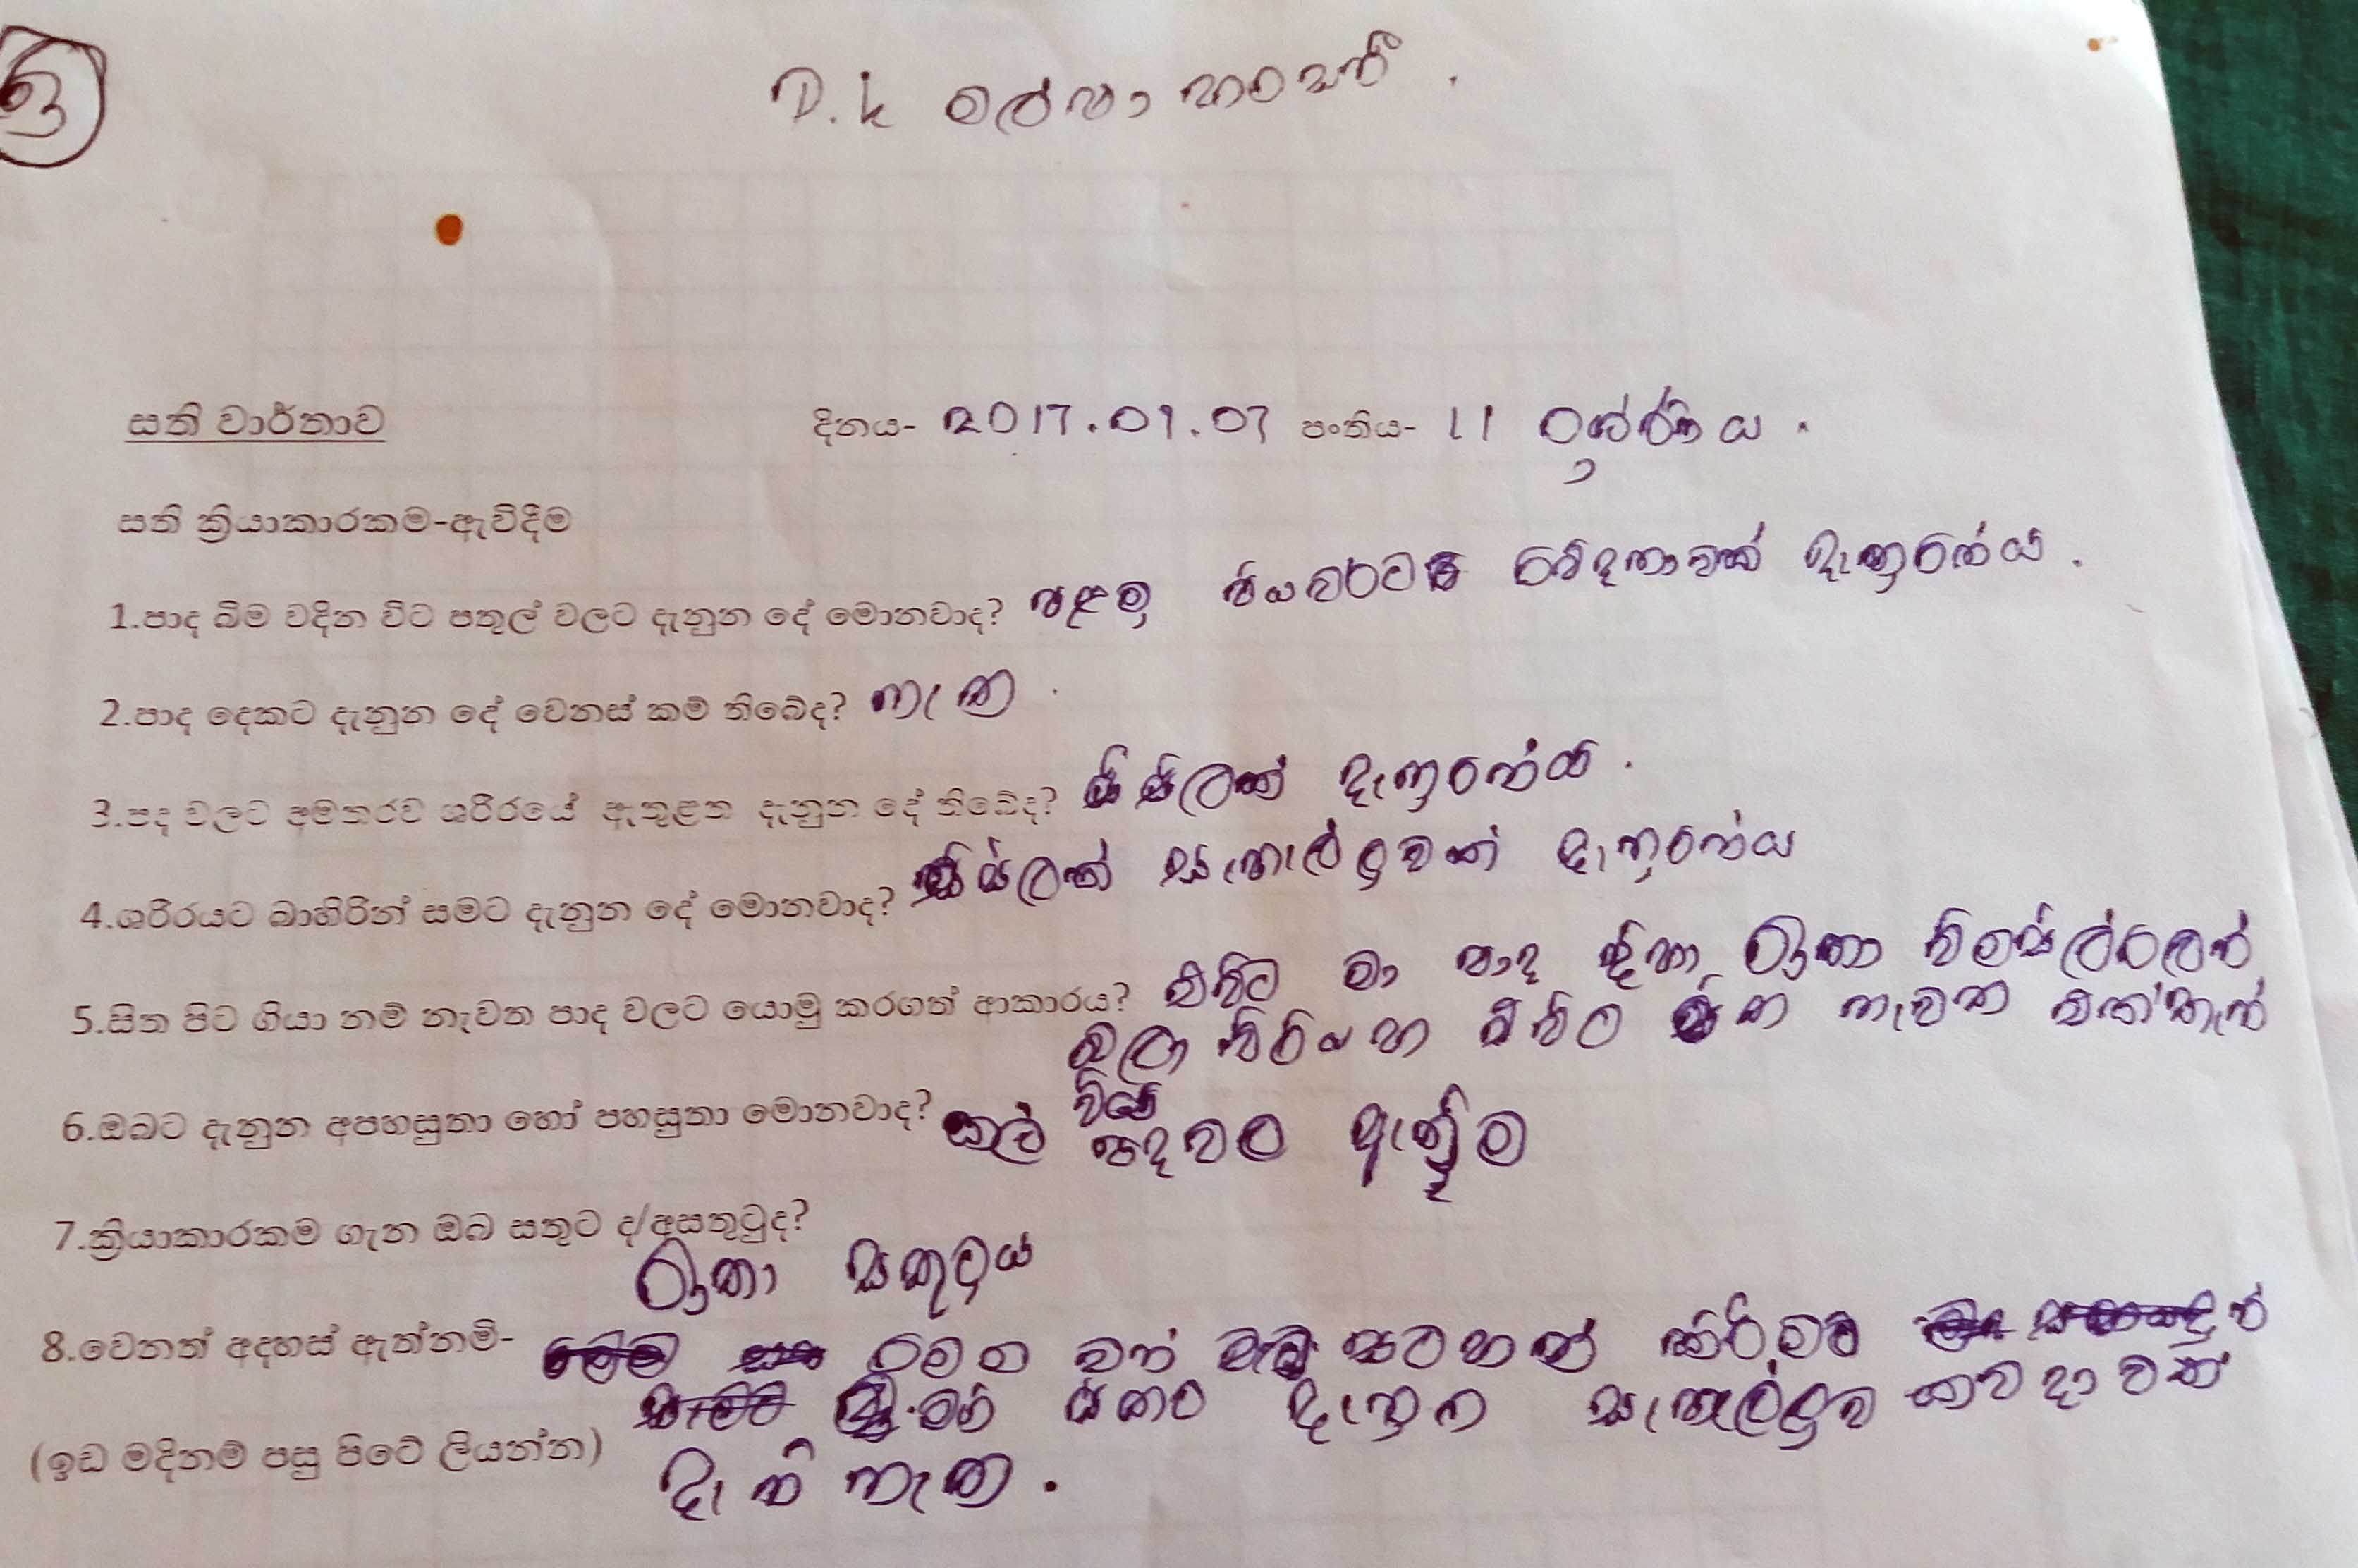 D.K ලේඛා හංසනී.
සති වාර්තාව දිනය- 2017.09.07 පංතිය- 11 ශ්‍රේණිය.
සති ක්‍රියාකාරකම-ඇවිදීම
1.පාද බිම වදින විට පතුල් වලට දැනුන දේ මොනවාද? පළමු පියවරට වේදනාවක් දැණුනේය.
2.පාද දෙකට දැනුන දේ වෙනස් කම් තිබේද? නැත.
3.පද වලට අමතරව ශරීරයේ ඇතුළත දැනුන දේ තිබේද? සිසිලක් දැණුනේය.
4.ශරීරයට බාහිරින් සමට දැනුන දේ මොනවාද? සිසිලක් සැහැල්ලුවක් දැනුනේය
5.සිත පිට ගියා නම් නැවත පාද වලට යොමු කරගත් ආකාරය? එවිට මා පාද දිහා ඉතා විමසිල්ලෙන්
බලා සිටියහ එවිට සිත නැවත එක්තැන්
විය
6.ඔබට දැනුන අපහසුතා හෝ පහසුතා මොනවාද? කල් පදවල ඇනුීම
7.ක්‍රියාකාරකම ගැන ඔබ සතුට ද/අසතුටුද?
ඉතා සතුටුය
8.වෙනත් අදහස් ඇත්නම්- මෙම වන් සටහන් කිරීමට
මගේ සිතට දැනුන සැහැල්ලුව කවදාවත්
(ඉඩ මදිනම් පසු පිටේ ලියන්න) දැනී නැත.